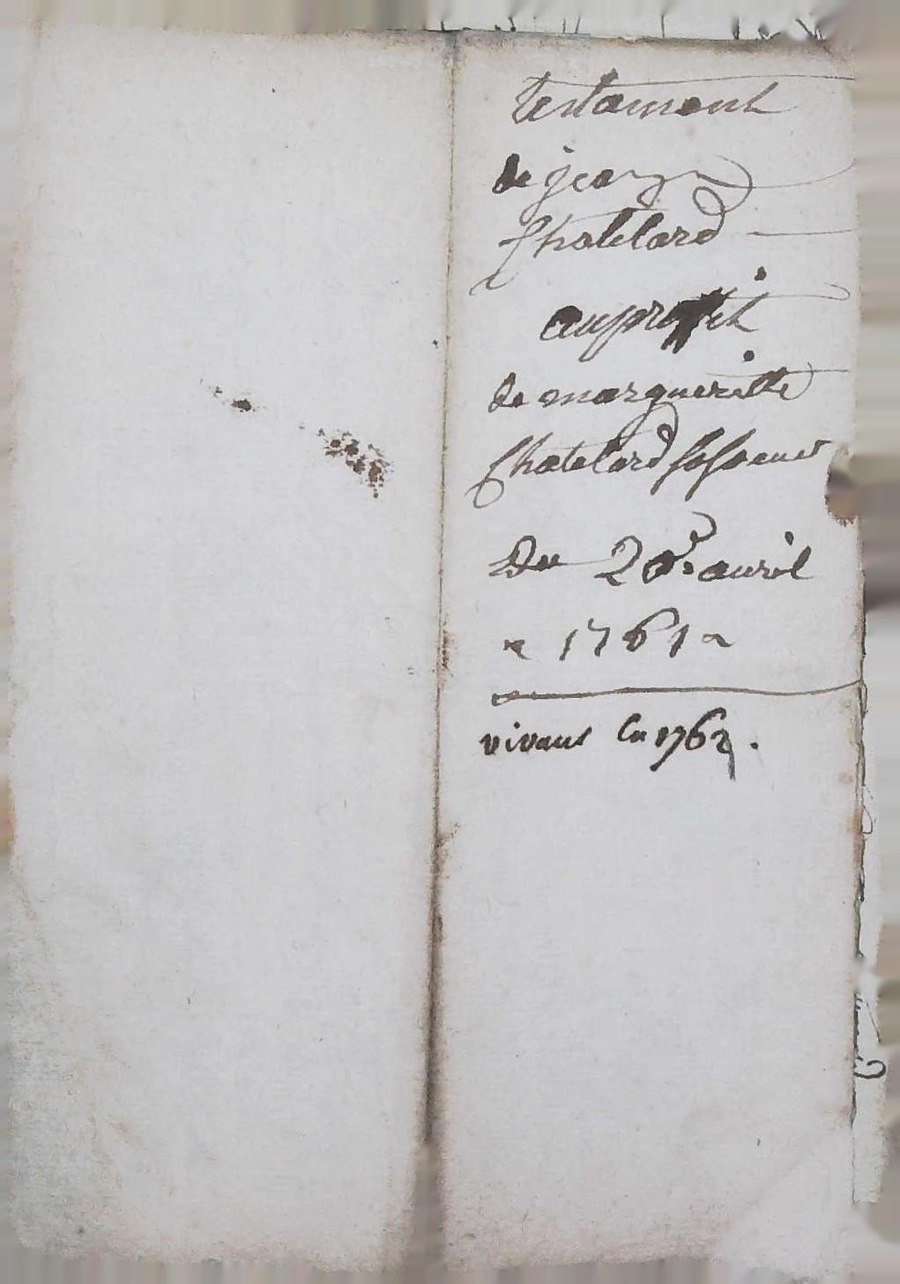 testament
de jean
Chatelard
au profit
de margueritte
Chatelard sa soeur
Du 20e. avril
1761
vivant en 1762.